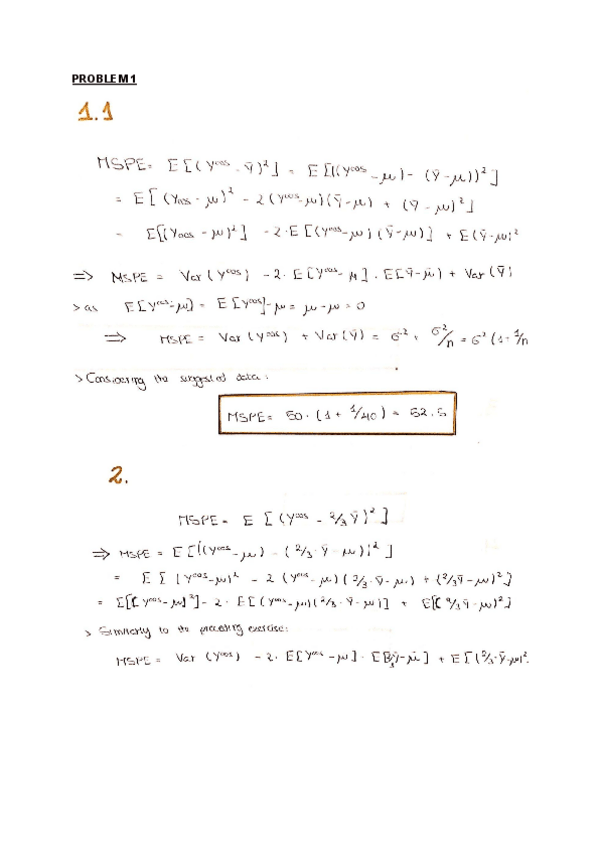 PROBLEM 1
1.1
MSPE = E[(Y^oos - Ȳ)²] = E[((Y^oos - μ) - (Ȳ - μ))²]
= E[(Yoos - μ)² - 2(Y^oos - μ)(Ȳ - μ) + (Ȳ - μ)²]
= E[(Yoos - μ)²] - 2·E[(Y^oos - μ)(Ȳ - μ)] + E(Ȳ - μ)²
=> MSPE = Var(Y^oos) - 2·E[Y^oos - μ]·E[Ȳ - μ] + Var(Ȳ)
> as E[Y^oos - μ] = E[Y^oos] - μ = μ - μ = 0
=> MSPE = Var(Y^oos) + Var(Ȳ) = σ² + σ²/n = σ²(1 + 1/n
> Considering the suggested data:
MSPE = 50·(1 + 1/40) =
2.
MSPE = E[(Y^oos - 2/3 Ȳ)²]
=> MSPE = E[((Y^oos - μ) - (2/3·Ȳ - μ))²]
= E[(Y^oos - μ)² - 2(Y^oos - μ)(2/3·Ȳ - μ) + (2/3Ȳ - μ)²]
= E[(Y^oos - μ)²] - 2·E[(Y^oos - μ)(2/3·Ȳ - μ)] + E[(2/3Ȳ - μ)²]
> Similarly to the preceding exercise:
MSPE = Var(Y^oos) - 2·E[Y^oos - μ]·E[2/3Ȳ - μ] + E[(2/3·Ȳ - μ)².